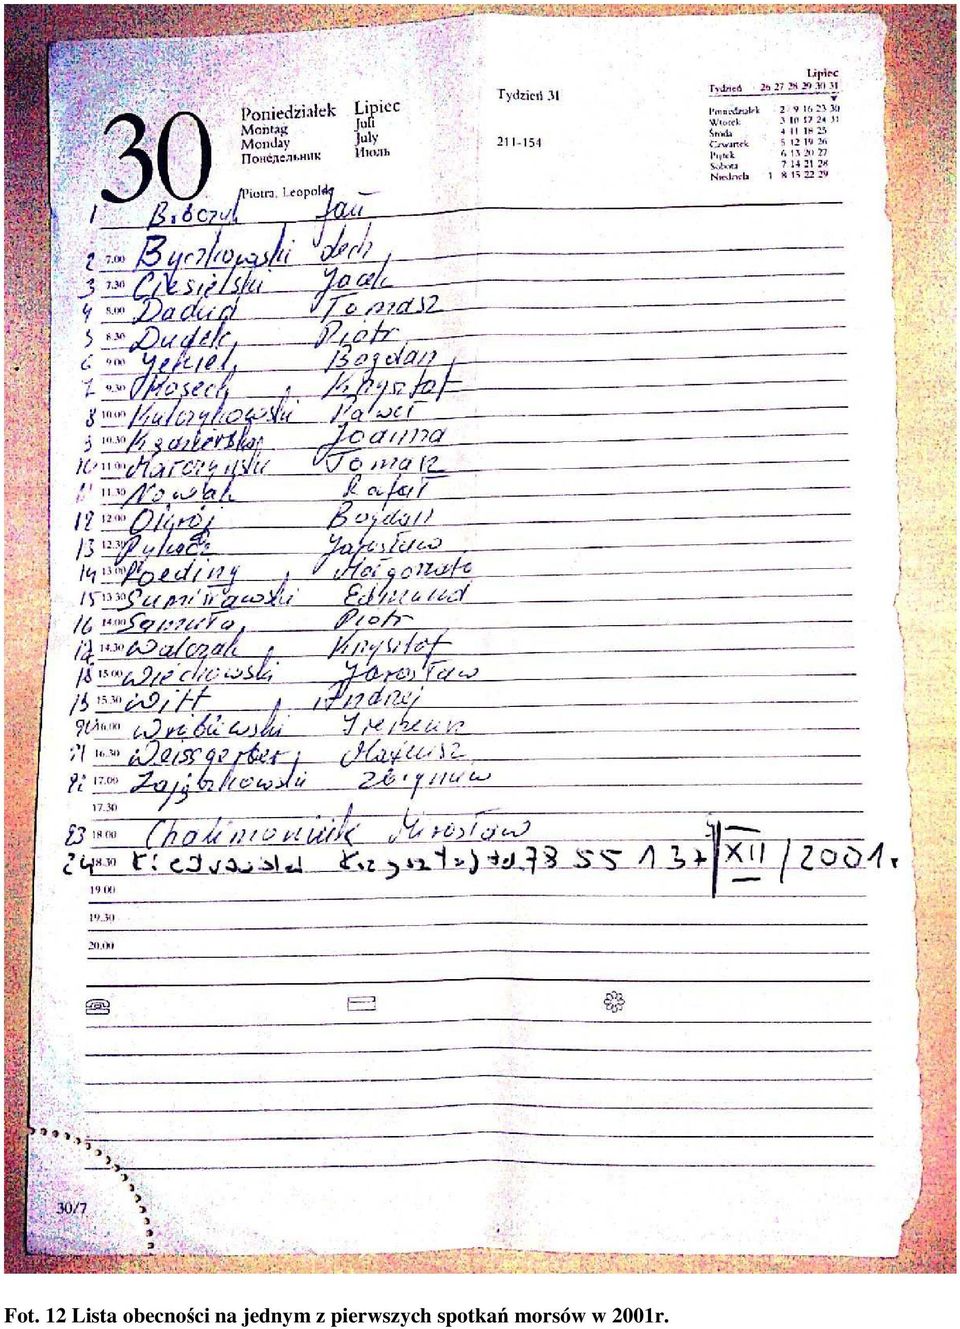 30
Poniedziałek Lipiec
Montag Juli
Monday July
Понедельник Июль
Piotra, Leopolda
Tydzień 31
211-154
Lipiec
Tydzień 26 27 28 29 30 31
Poniedziałek 2 9 16 23 30
Wtorek 3 10 17 24 31
Środa 4 11 18 25
Czwartek 5 12 19 26
Piątek 6 13 20 27
Sobota 7 14 21 28
Niedziela 1 8 15 22 29
1 Jan
2 7.00 Byczkowski Lech
3 7.30 Ciesielski Jacek
4 8.00 Dadura Tomasz
5 8.30 Dudek, Piotr
6 9.00 Bogdan
7 9.30 Krzysztof
8 10.00 Paweł
9 10.30 Joanna
10 11.00 Marczyński Tomasz
11 11.30 Nowak Rafał
12 12.00 Bogdan
13 12.30 Jarosław
14 13.00 Małgorzata
15 13.30 Edmund
16 14.00 Samuła, Piotr
17 14.30 Walczak, Krzysztof
18 15.00 Wiechowski Jarosław
19 15.30 Witt, Andrzej
20 16.00 Ireneusz
21 16.30 Weissgerber, Mariusz
22 17.00 Zajączkowski Zbigniew
17.30
23 18.00 Chalimoniuk Mirosław
24 18.30 Krzysztof XII / 2001r.
19.00
19.30
20.00
30/7
Fot. 12 Lista obecności na jednym z pierwszych spotkań morsów w 2001r.